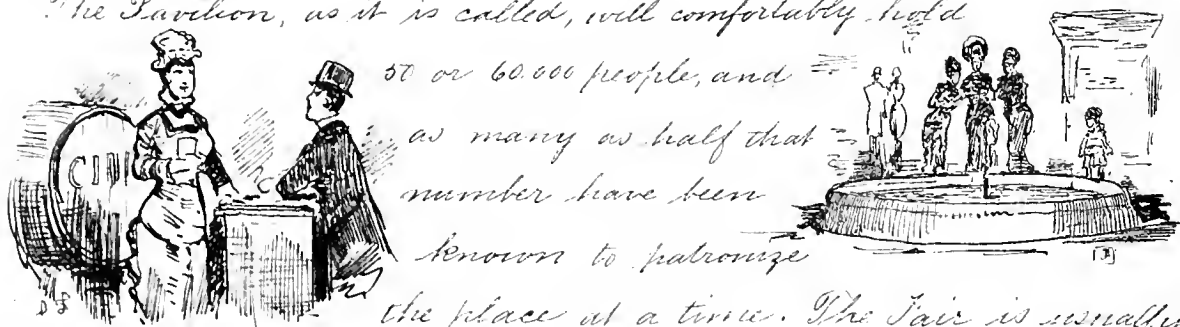 The Pavilion, as it is called, will comfortably hold
50 or 60.000 people, and
as many as half that
number have been
known to patronize
the place at a time. The Fair is usually
CIDE